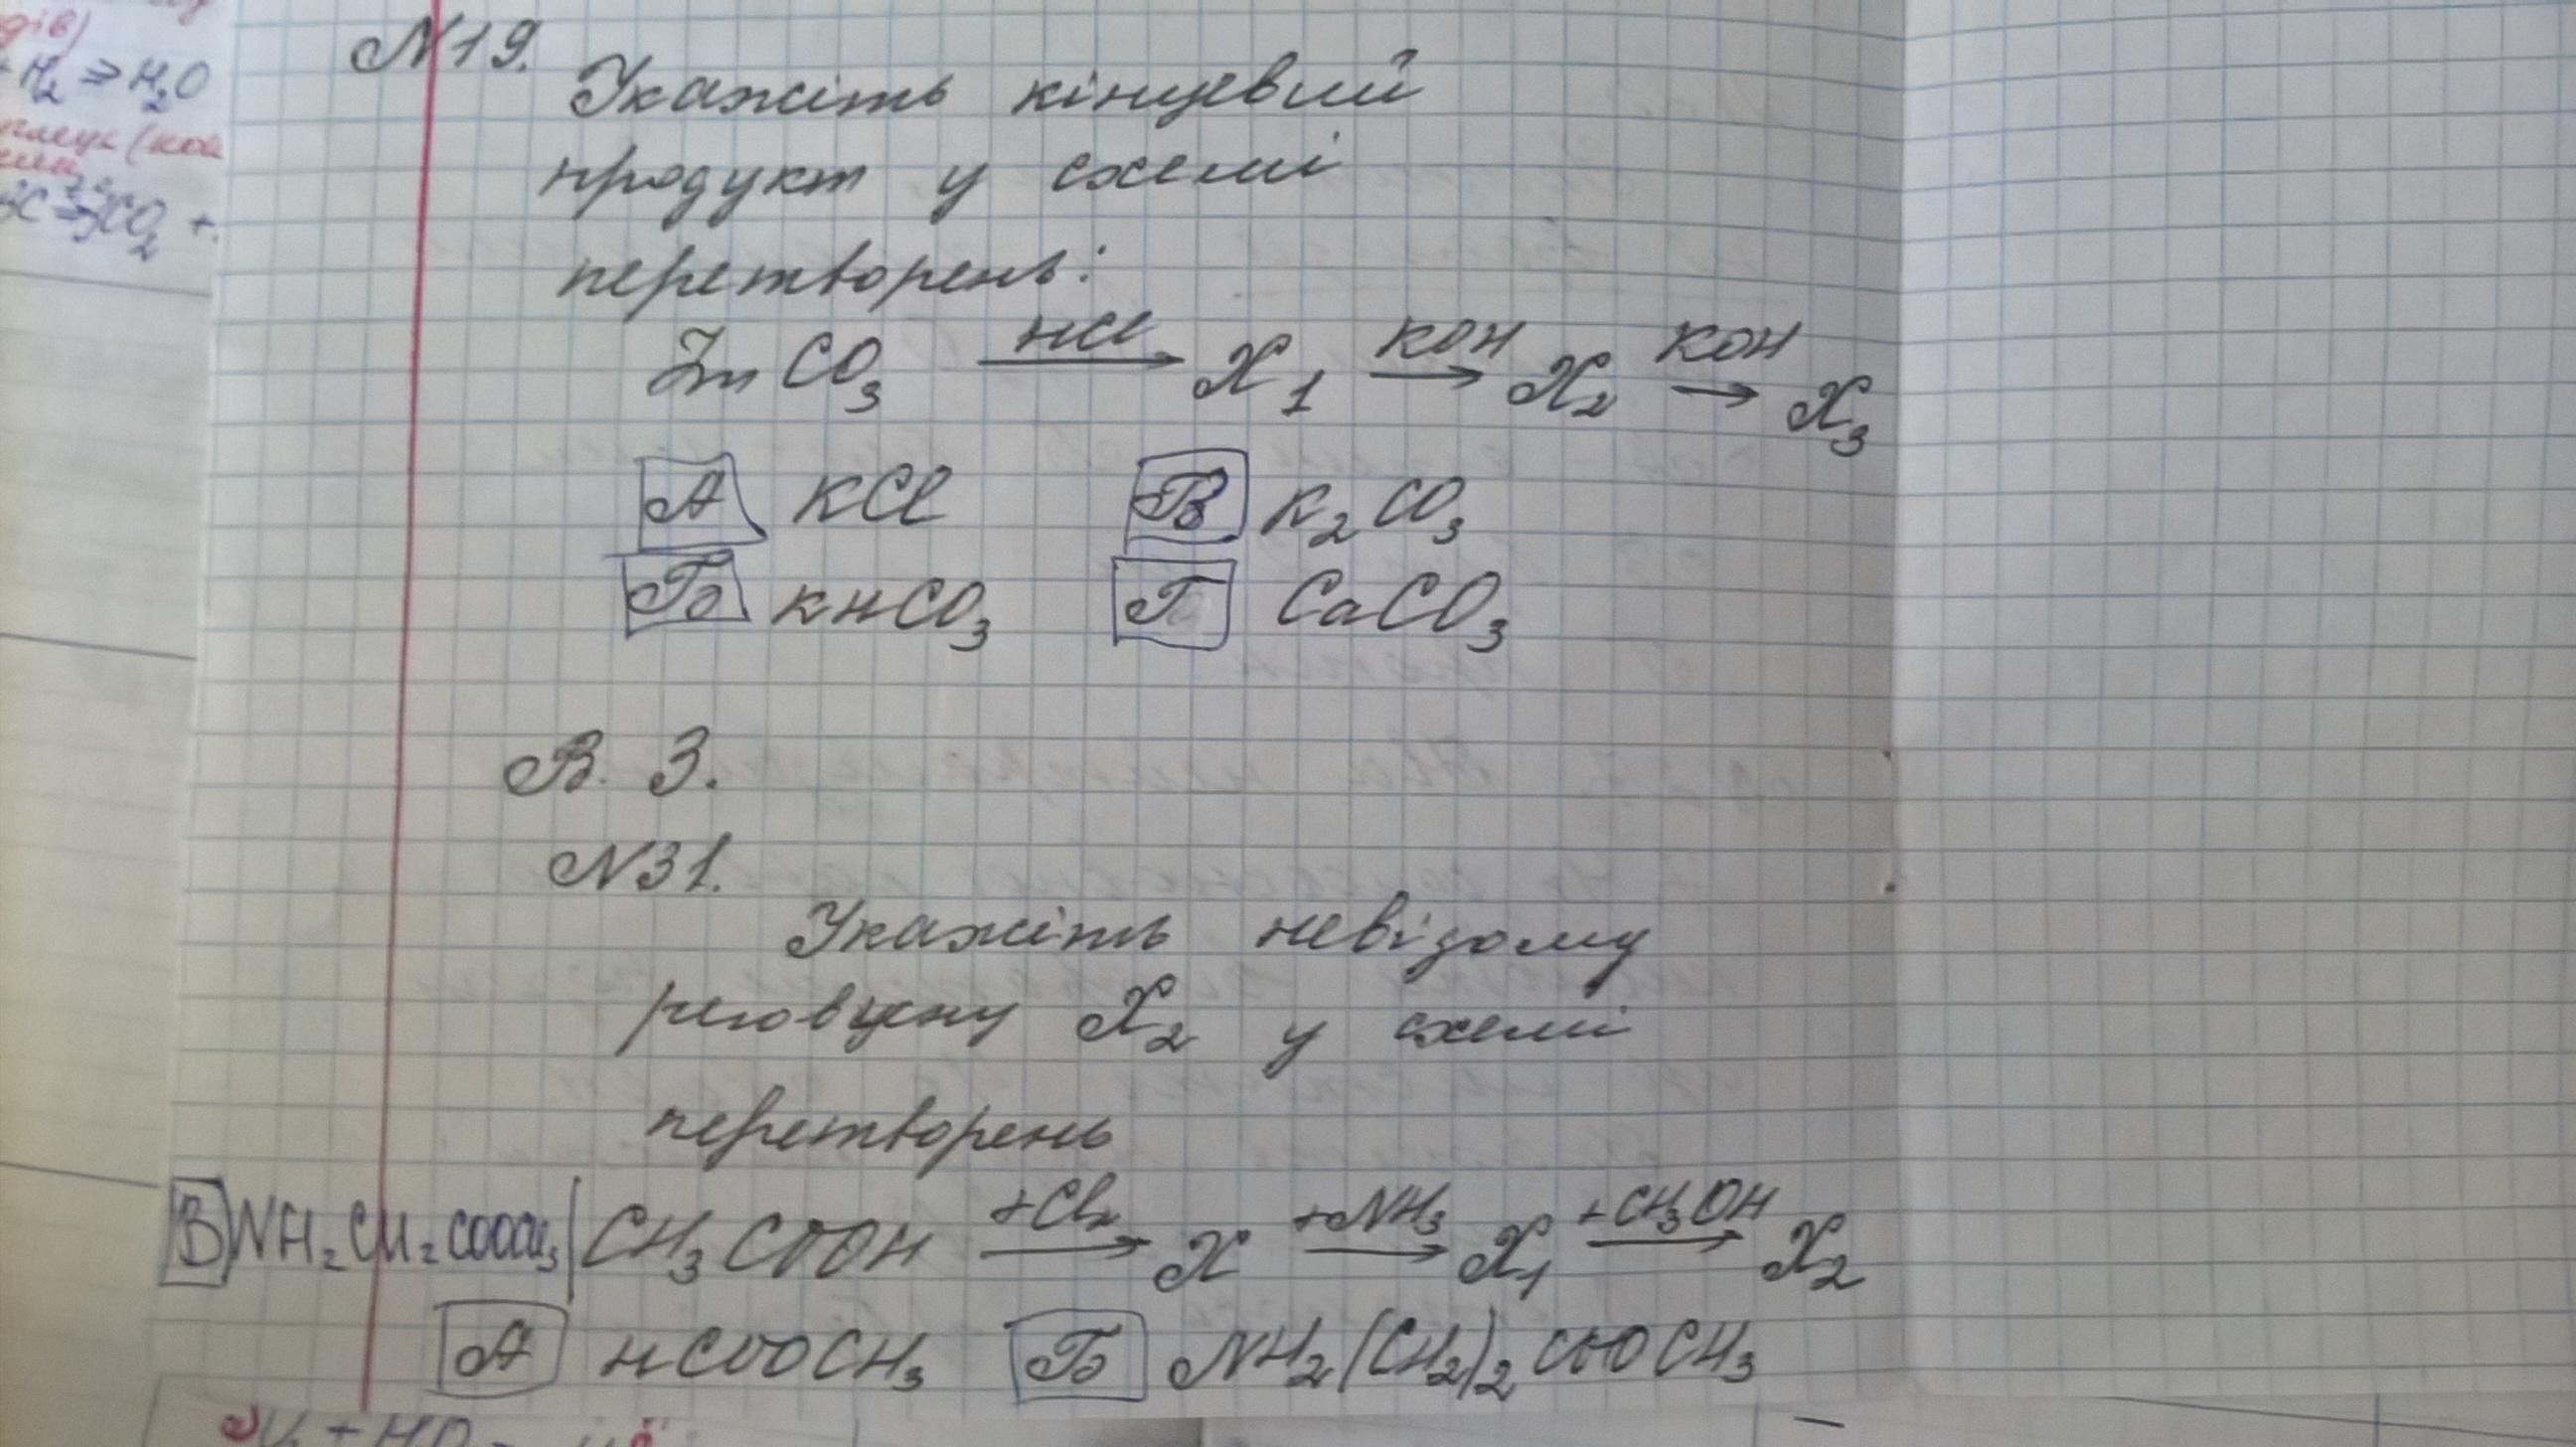 дів)
+H₂ ⇒ H₂O
N19.
Укажіть кінцевий
продукт у схемі
перетворень:
ZnCO₃ —HCl→ X₁ —KOH→ X₂ —KOH→ X₃
А KCl В K₂CO₃
Б KHCO₃ Г CaCO₃
В. 3.
N31.
Укажіть невідому
речовину X₂ у схемі
перетворень
В NH₂CH₂COOCH₃ | CH₃COOH —+Cl₂→ X —+NH₃→ X₁ —+CH₃OH→ X₂
А HCOOCH₃ Б NH₂(CH₂)₂COOCH₃